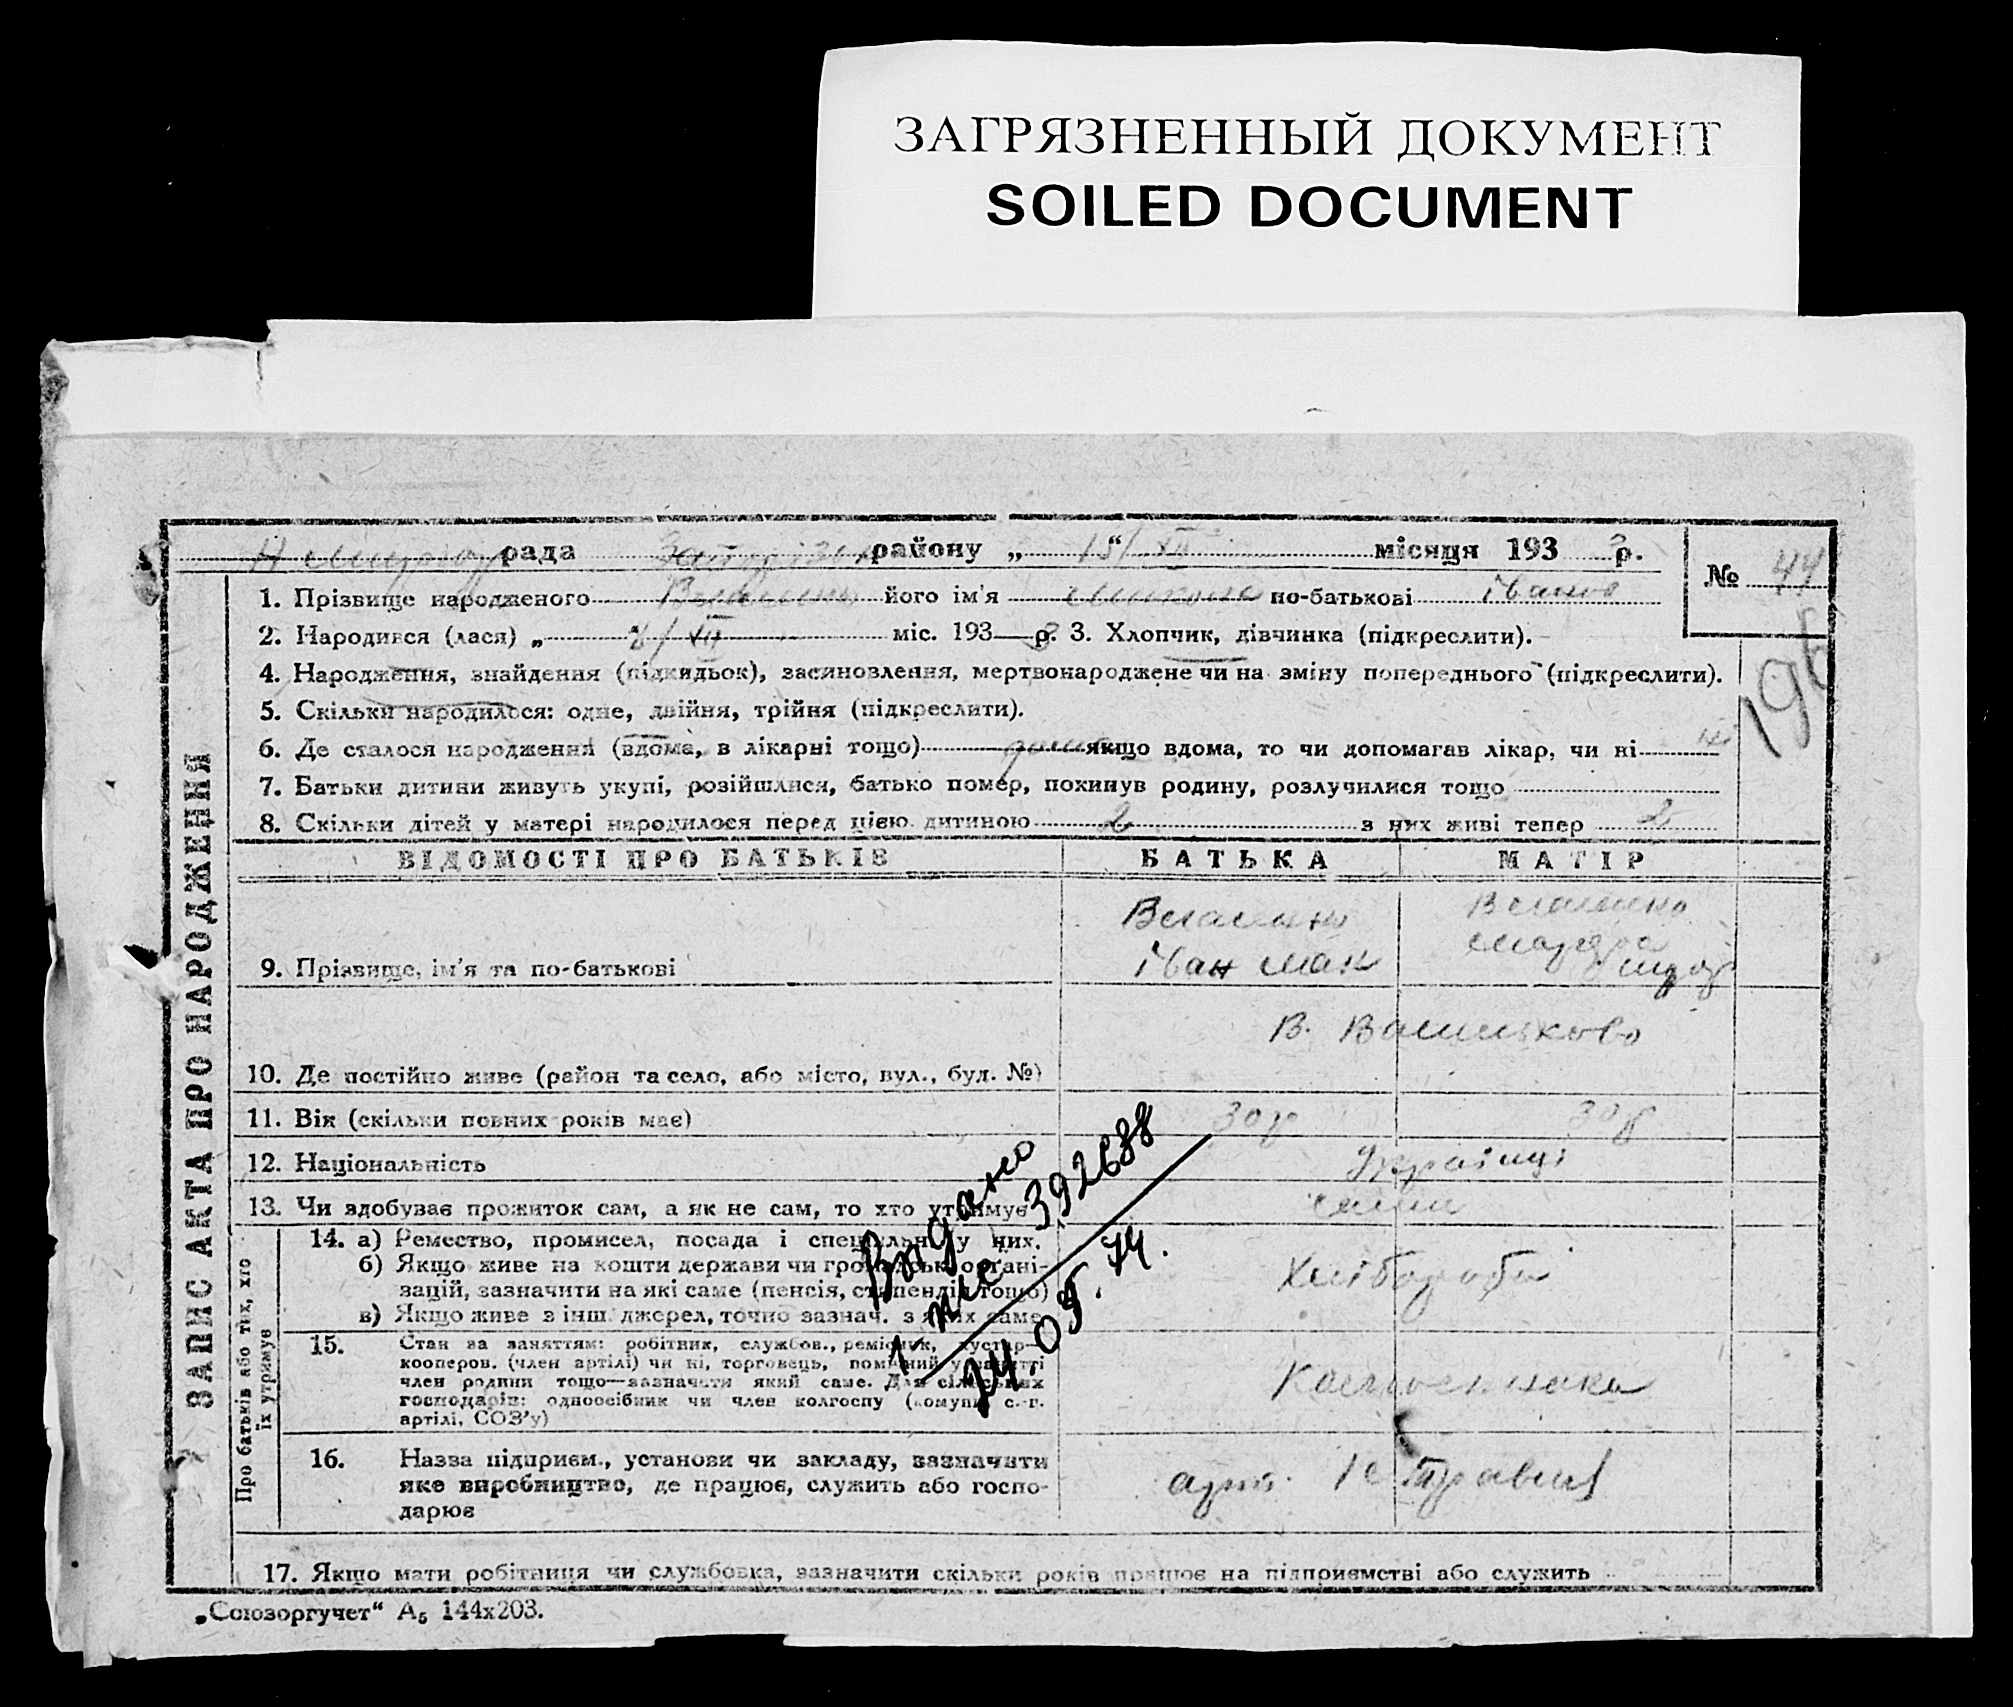 ЗАГРЯЗНЕННЫЙ ДОКУМЕНТ
SOILED DOCUMENT
рада району „ 15/XII “ місяця 193 р.
№ 44
1. Прізвище народженого його ім'я по-батькові
2. Народився (лася) „ /XII міс. 193 р. 3. Хлопчик, дівчинка (підкреслити).
4. Народження, знайдення (підкидьок), засиновлення, мертвонароджене чи на зміну попереднього (підкреслити).
5. Скільки народилося: одне, двійня, трійня (підкреслити).
6. Де сталося народження (вдома, в лікарні тощо) дома якщо вдома, то чи допомагав лікар, чи ні ні
7. Батьки дитини живуть укупі, розійшлися, батько помер, покинув родину, розлучилися тощо
8. Скільки дітей у матері народилося перед цією дитиною 2 з них живі тепер 2
ЗАПИС АКТА ПРО НАРОДЖЕННЯ
ВІДОМОСТІ ПРО БАТЬКІВ БАТЬКА МАТІР
9. Прізвище, ім'я та по-батькові
Іван мак
10. Де постійно живе (район та село, або місто, вул., буд. №)
В.
11. Вік (скільки повних років має) 30р 30р
12. Національність Українці
13. Чи здобуває прожиток сам, а як не сам, то хто утримує сами
Про батьків або тих, хто їх утримує
14. а) Ремество, промисел, посада і спеціяльн. у них.
б) Якщо живе на кошти держави чи громадськ. органі-
зацій, зазначити на які саме (пенсія, стипендія тощо)
в) Якщо живе з інш. джерел, точно зазнач. з яких саме
Хлібороби
15. Стан за заняттям: робітник, службов., ремісник, кустар—
кооперов. (член артілі) чи ні, торговець, помічний у занятті
член родини тощо—зазначити який саме. Для сільських
господарів: одноосібник чи член колгоспу (комуни, с.-г.
артілі, СОЗ'у)
Колгоспники
16. Назва підприєм., установи чи закладу, зазначити
яке виробництво, де працює, служить або госпо-
дарює
арт. 1е травня
17. Якщо мати робітниця чи службовка, зазначити скільки років працює на підприємстві або служить
Видано
1-ПС 392688
24.05.74.
„Союзоргучет“ А₅ 144х203.